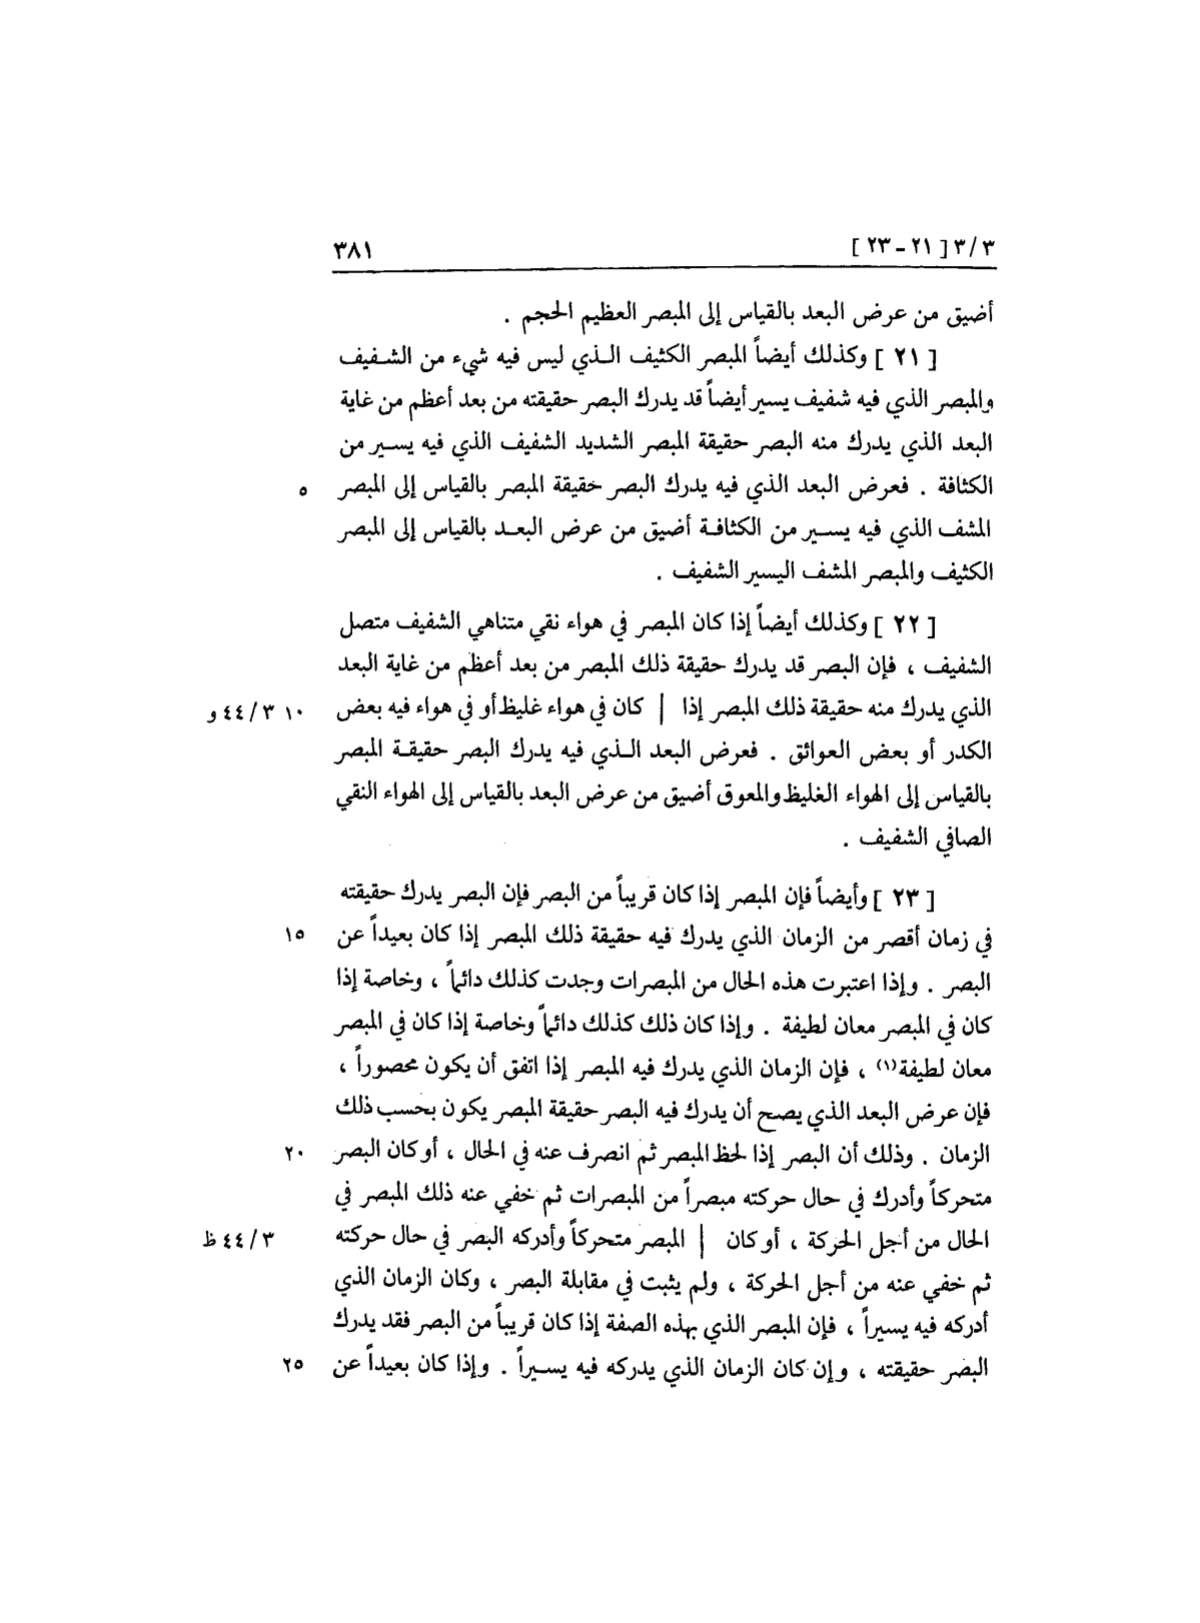 ٣/٣ [ ٢١ - ٢٣ ] ٣٨١
أضيق من عرض البعد بالقياس إلى المبصر العظيم الحجم .
[ ٢١ ] وكذلك أيضاً المبصر الكثيف الـذي ليس فيه شيء من الشـفيف
والمبصر الذي فيه شفيف يسير أيضاً قد يدرك البصر حقيقته من بعد أعظم من غاية
البعد الذي يدرك منه البصر حقيقة المبصر الشديد الشفيف الذي فيه يسـير من
الكثافة . فعرض البعد الذي فيه يدرك البصر حقيقة المبصر بالقياس إلى المبصر ٥
المشف الذي فيه يسـير من الكثافـة أضيق من عرض البعـد بالقياس إلى المبصر
الكثيف والمبصر المشف اليسير الشفيف .
[ ٢٢ ] وكذلك أيضاً إذا كان المبصر في هواء نقي متناهي الشفيف متصل
الشفيف ، فإن البصر قد يدرك حقيقة ذلك المبصر من بعد أعظم من غاية البعد
الذي يدرك منه حقيقة ذلك المبصر إذا | كان في هواء غليظ أو في هواء فيه بعض ١٠ ٣/٤٤ و
الكدر أو بعض العوائق . فعرض البعد الـذي فيه يدرك البصر حقيقـة المبصر
بالقياس إلى الهواء الغليظ والمعوق أضيق من عرض البعد بالقياس إلى الهواء النقي
الصافي الشفيف .
[ ٢٣ ] وأيضاً فإن المبصر إذا كان قريباً من البصر فإن البصر يدرك حقيقته
في زمان أقصر من الزمان الذي يدرك فيه حقيقة ذلك المبصر إذا كان بعيداً عن ١٥
البصر . وإذا اعتبرت هذه الحال من المبصرات وجدت كذلك دائماً ، وخاصة إذا
كان في المبصر معان لطيفة . وإذا كان ذلك كذلك دائماً وخاصة إذا كان في المبصر
معان لطيفة(١) ، فإن الزمان الذي يدرك فيه المبصر إذا اتفق أن يكون محصوراً ،
فإن عرض البعد الذي يصح أن يدرك فيه البصر حقيقة المبصر يكون بحسب ذلك
الزمان . وذلك أن البصر إذا لحظ المبصر ثم انصرف عنه في الحال ، أو كان البصر ٢٠
متحركاً وأدرك في حال حركته مبصراً من المبصرات ثم خفي عنه ذلك المبصر في
الحال من أجل الحركة ، أو كان | المبصر متحركاً وأدركه البصر في حال حركته ٣/٤٤ ظ
ثم خفي عنه من أجل الحركة ، ولم يثبت في مقابلة البصر ، وكان الزمان الذي
أدركه فيه يسيراً ، فإن المبصر الذي بهذه الصفة إذا كان قريباً من البصر فقد يدرك
البصر حقيقته ، وإن كان الزمان الذي يدركه فيه يسـيراً . وإذا كان بعيداً عن ٢٥